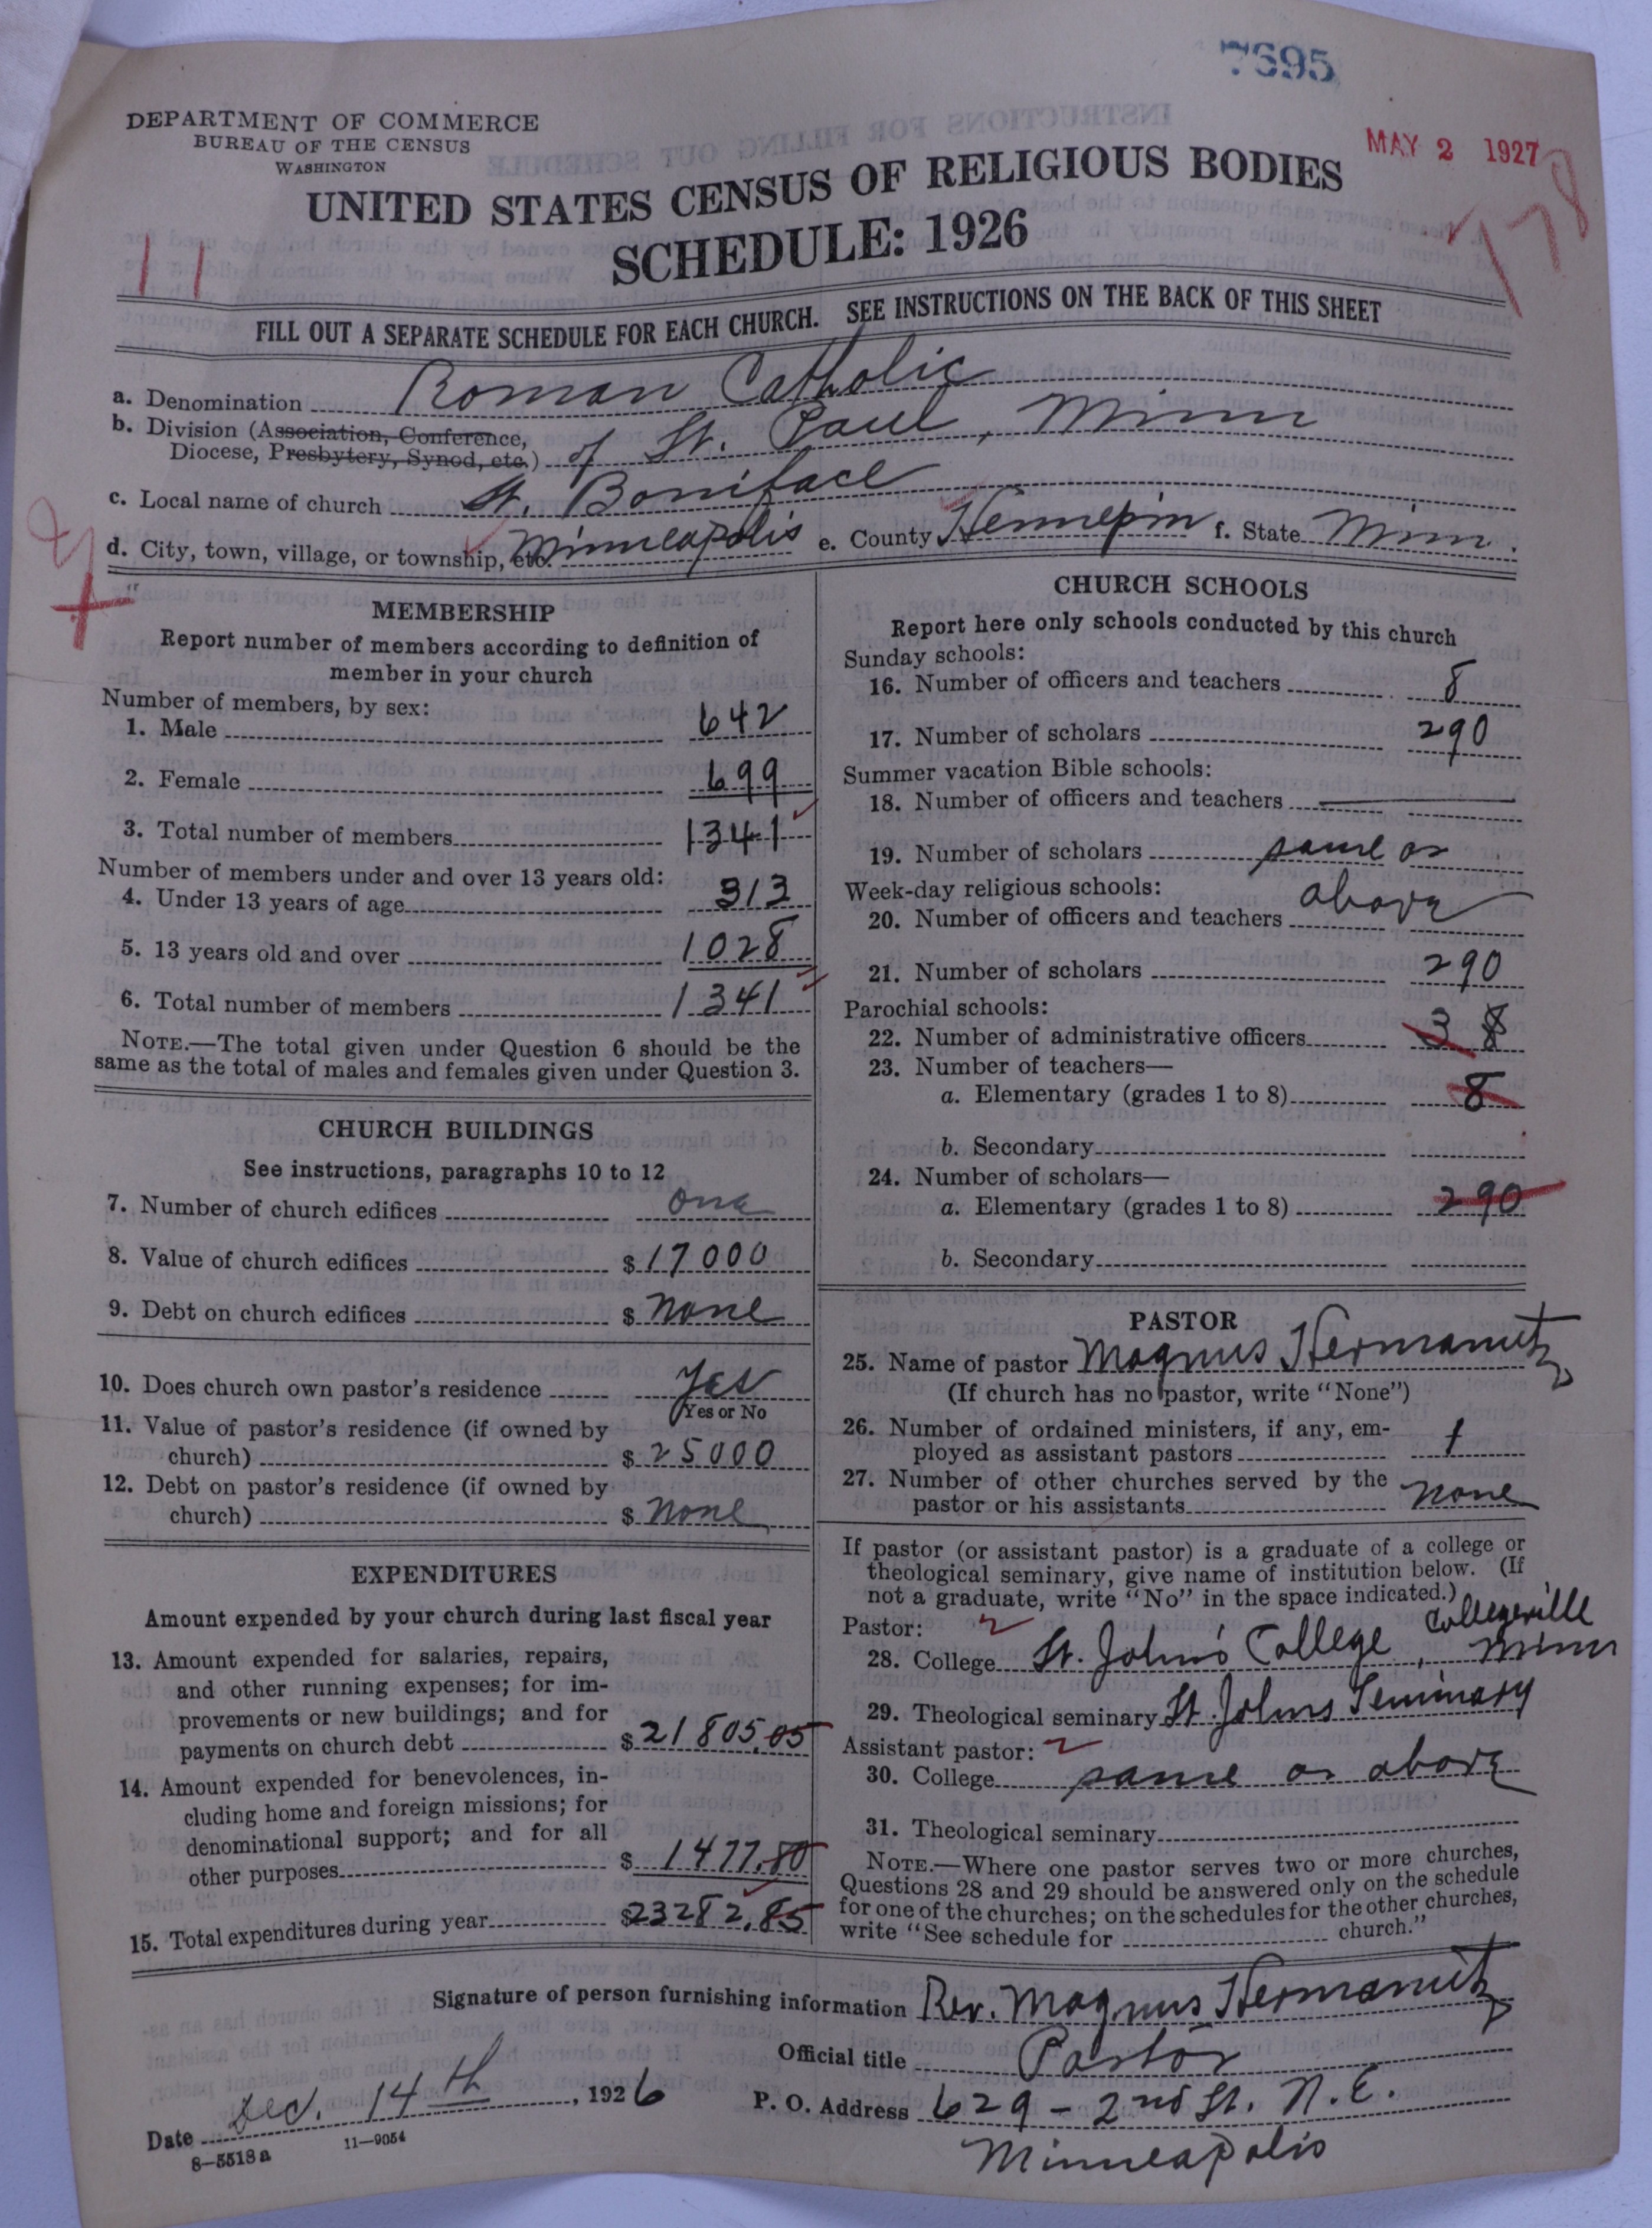 7695
DEPARTMENT OF COMMERCE
BUREAU OF THE CENSUS
WASHINGTON
MAY 2 1927
178
UNITED STATES CENSUS OF RELIGIOUS BODIES
SCHEDULE: 1926
11
FILL OUT A SEPARATE SCHEDULE FOR EACH CHURCH. SEE INSTRUCTIONS ON THE BACK OF THIS SHEET
a. Denomination Roman Catholic
b. Division (Association, Conference,
Diocese, Presbytery, Synod, etc.) of St. Paul, Minn
c. Local name of church St. Boniface
d. City, town, village, or township, etc. Minneapolis e. County Hennepin f. State Minn.
MEMBERSHIP
Report number of members according to definition of
member in your church
Number of members, by sex:
1. Male 642
2. Female 699
3. Total number of members 1341
Number of members under and over 13 years old:
4. Under 13 years of age 313
5. 13 years old and over 1028
6. Total number of members 1341
NOTE.—The total given under Question 6 should be the
same as the total of males and females given under Question 3.
CHURCH BUILDINGS
See instructions, paragraphs 10 to 12
7. Number of church edifices one
8. Value of church edifices $ 17000
9. Debt on church edifices $ none
10. Does church own pastor's residence Yes
Yes or No
11. Value of pastor's residence (if owned by
church) $ 25000
12. Debt on pastor's residence (if owned by
church) $ none
EXPENDITURES
Amount expended by your church during last fiscal year
13. Amount expended for salaries, repairs,
and other running expenses; for im-
provements or new buildings; and for
payments on church debt $ 21805.05
14. Amount expended for benevolences, in-
cluding home and foreign missions; for
denominational support; and for all
other purposes $ 1477.80
15. Total expenditures during year $ 23282.85
CHURCH SCHOOLS
Report here only schools conducted by this church
Sunday schools:
16. Number of officers and teachers 8
17. Number of scholars 290
Summer vacation Bible schools:
18. Number of officers and teachers
19. Number of scholars same as
Week-day religious schools: above
20. Number of officers and teachers
21. Number of scholars 290
Parochial schools:
22. Number of administrative officers 3 8
23. Number of teachers—
a. Elementary (grades 1 to 8) 8
b. Secondary
24. Number of scholars—
a. Elementary (grades 1 to 8) 290
b. Secondary
PASTOR
25. Name of pastor Magnus Hermanutz
(If church has no pastor, write "None")
26. Number of ordained ministers, if any, em-
ployed as assistant pastors 1
27. Number of other churches served by the
pastor or his assistants none
If pastor (or assistant pastor) is a graduate of a college or
theological seminary, give name of institution below. (If
not a graduate, write "No" in the space indicated.)
Pastor: Collegeville
28. College St. John's College, Minn
29. Theological seminary St. Johns Seminary
Assistant pastor:
30. College same as above
31. Theological seminary
NOTE.—Where one pastor serves two or more churches,
Questions 28 and 29 should be answered only on the schedule
for one of the churches; on the schedules for the other churches,
write "See schedule for church."
Signature of person furnishing information Rev. Magnus Hermanutz
Official title Pastor
Date Dec. 14th, 1926 P. O. Address 629 - 2nd St. N.E.
Minneapolis
8—5518 a 11—9054